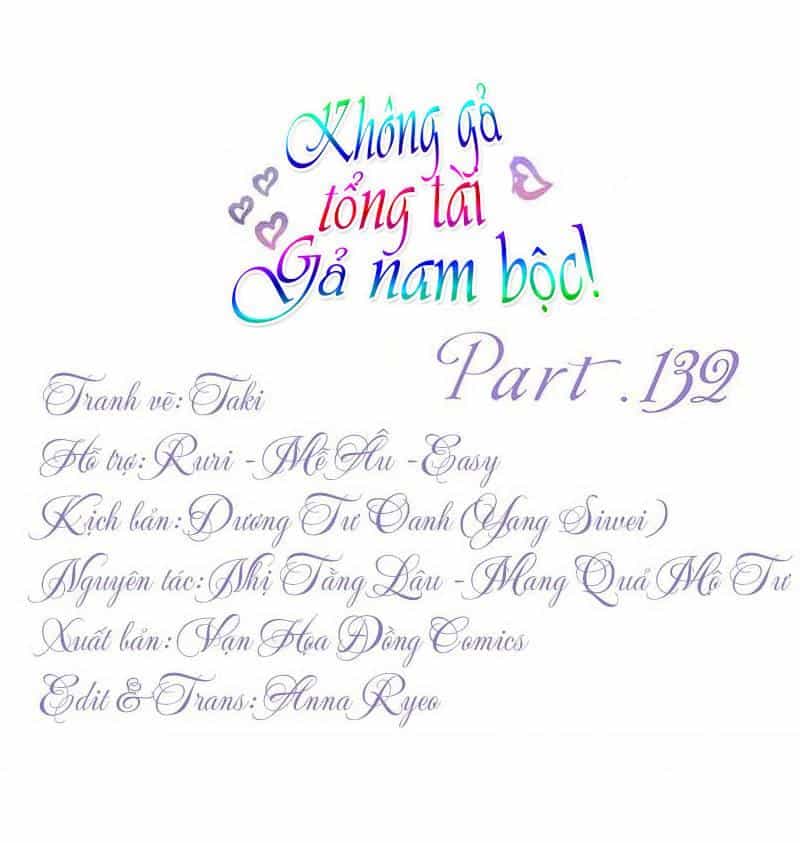 Không gả
tổng tài
Gả nam bộc!
Part .132
Tranh vẽ: Taki
Hỗ trợ: Ruri - Mễ Âu - Easy
Kịch bản: Dương Tư Oanh (Yang Siwei)
Nguyên tác: Nhị Tằng Lâu - Mang Quả Mộ Tư
Xuất bản: Vạn Họa Đồng Comics
Edit & Trans: Anna Ryeo